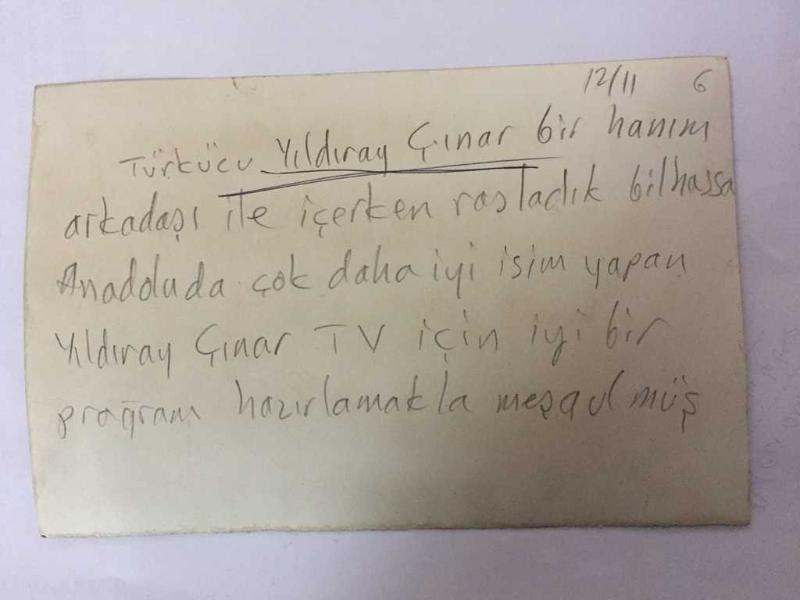 12/11 6
Türkücü Yıldıray Çınar bir hanım
arkadaşı ile içerken rastladık bilhassa
Anadoluda çok daha iyi isim yapan
Yıldıray Çınar TV için iyi bir
prağram hazırlamakla meşgulmüş